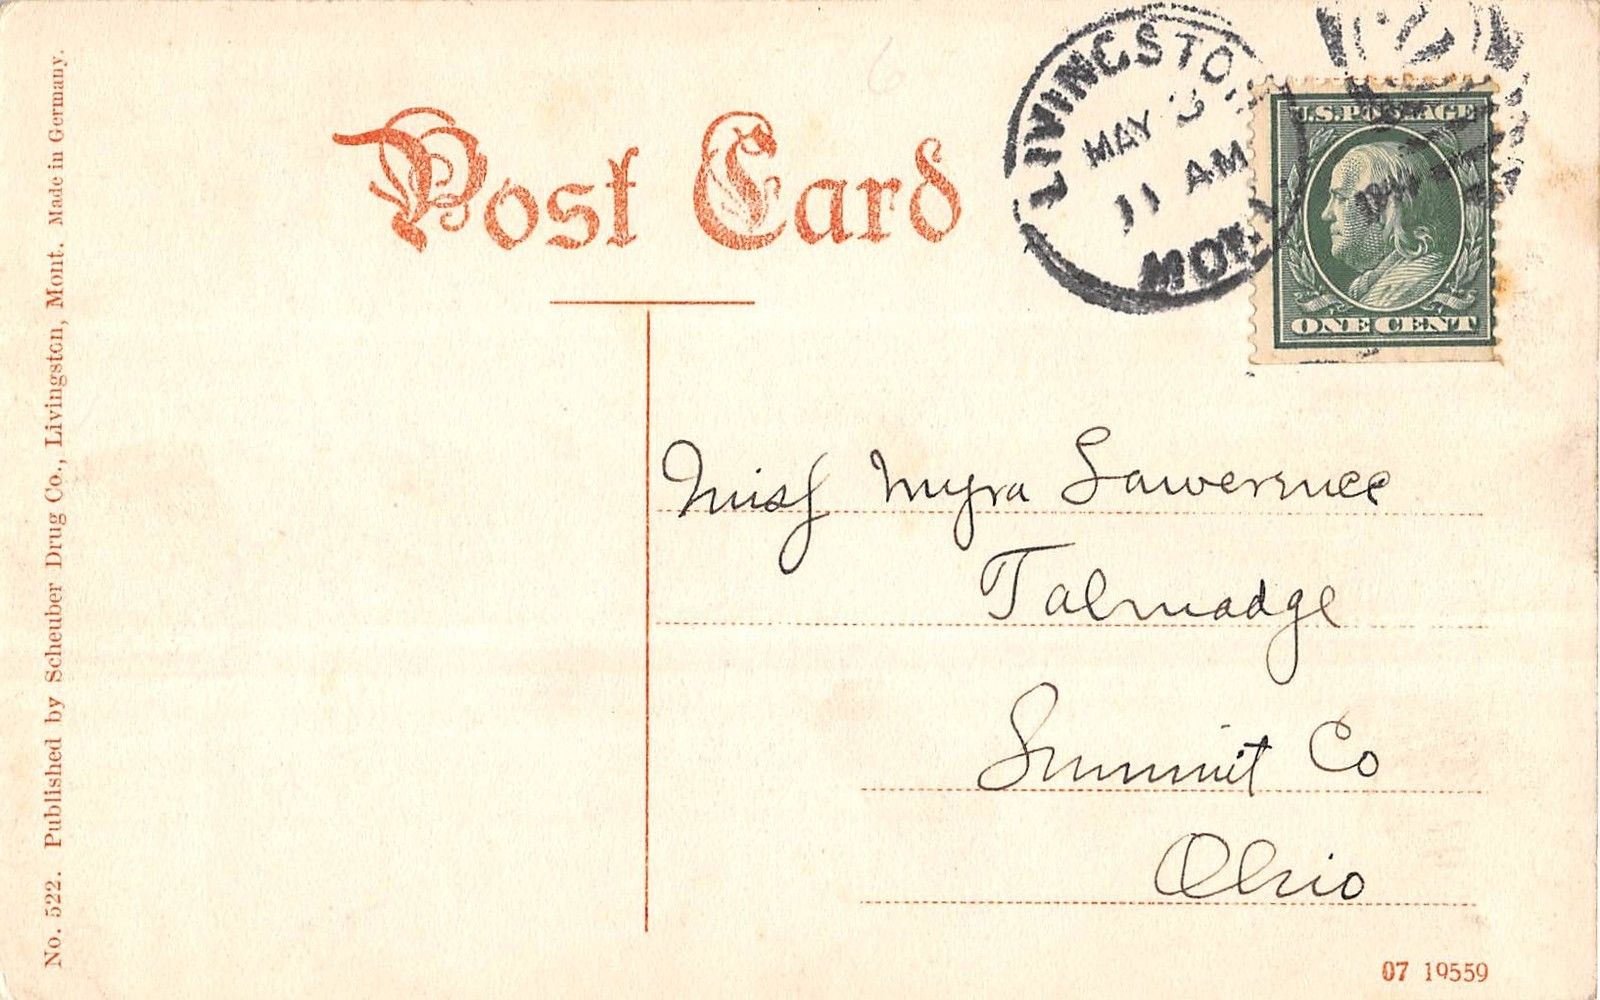 Post Card
LIVINGSTON
MAY 3
11 AM
MONT.
U.S. POSTAGE
ONE CENT
Miss Myra Lawerence
Talmadge
Summit Co
Ohio
No. 522. Published by Scheuber Drug Co., Livingston, Mont. Made in Germany.
07 19559